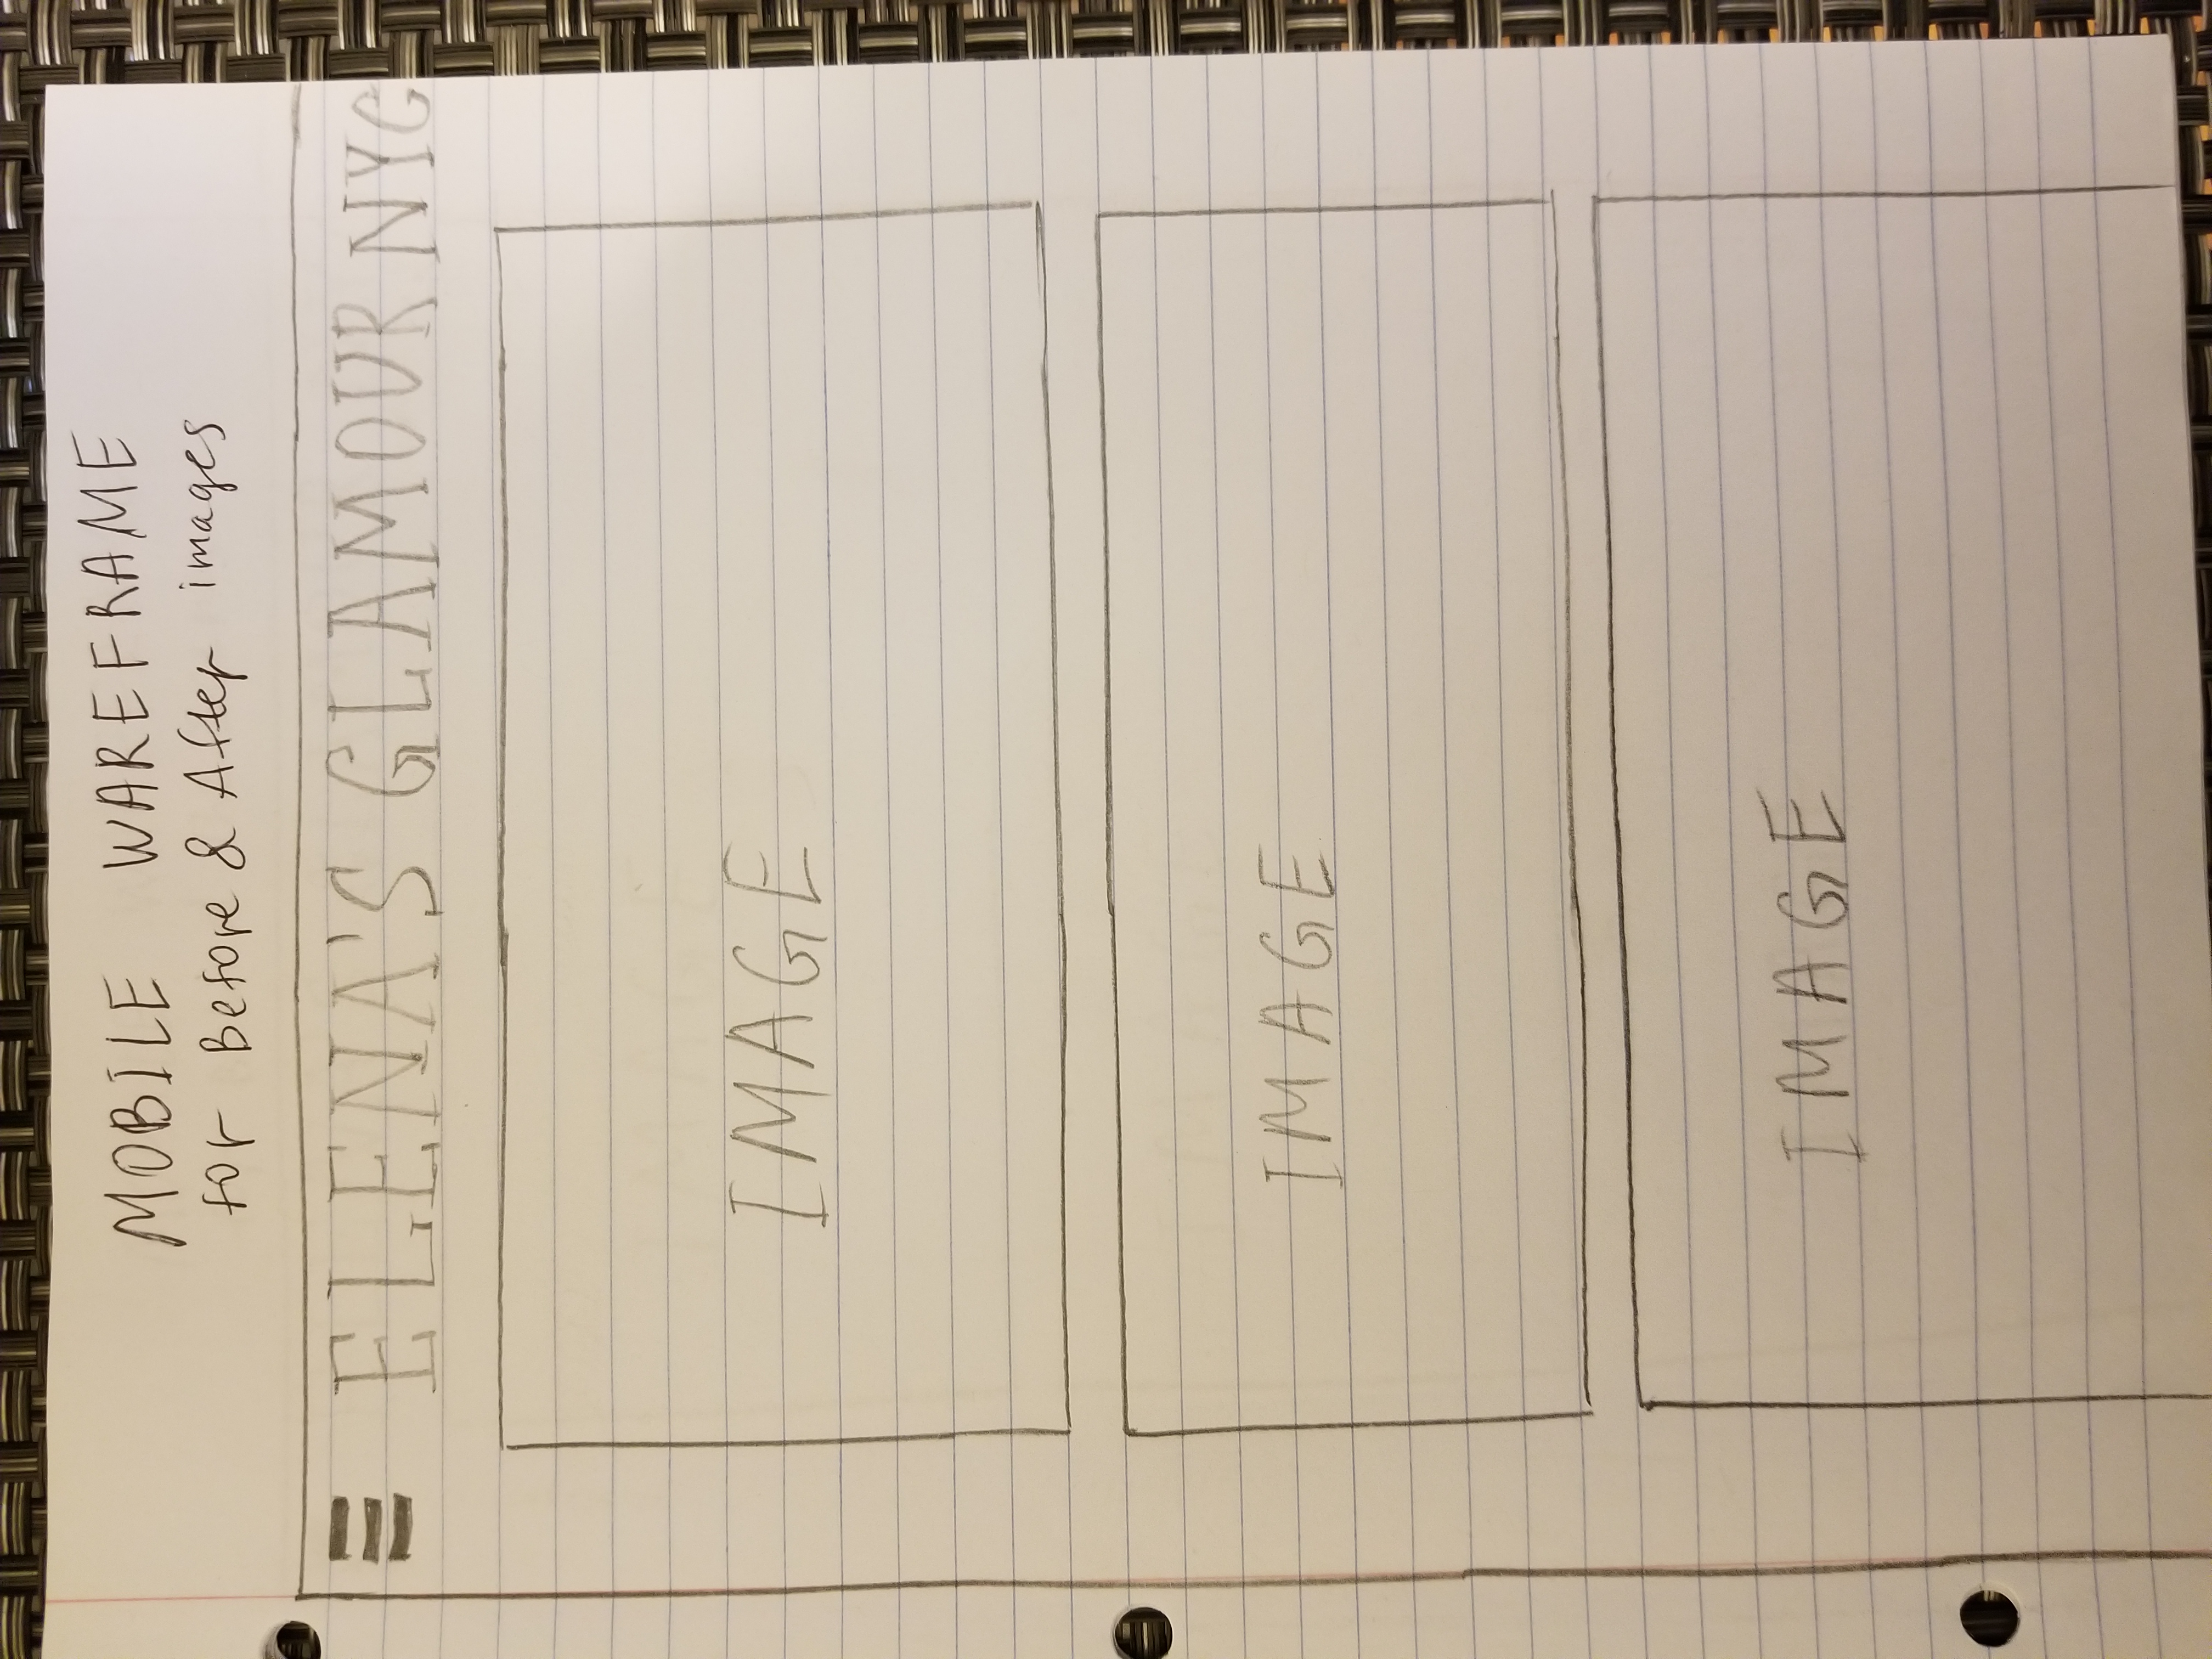 MOBILE WAREFRAME
for Before & After images
ELENA'S GLAMOUR NYC
IMAGE
IMAGE
IMAGE